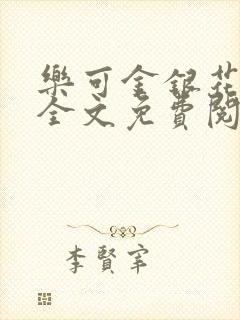 樂可金銀花
全文免費閱
李賢宰